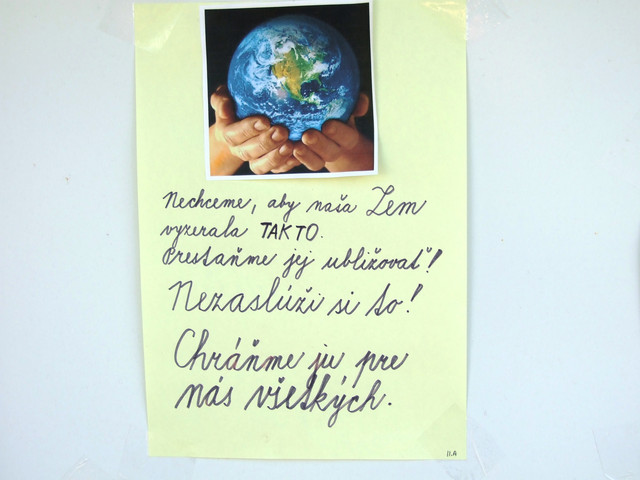 Nechceme, aby naša Zem
vyzerala TAKTO.
Prestaňme jej ubližovať!
Nezaslúži si to!
Chráňme ju pre
nás všetkých.
II.A